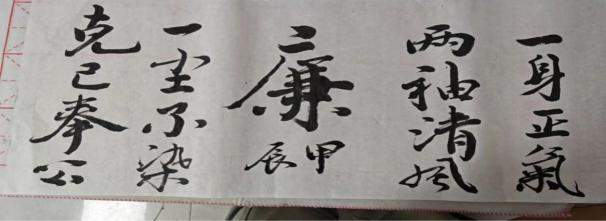 一身正氣
两袖清風
廉
甲辰
一尘不染
克己奉公